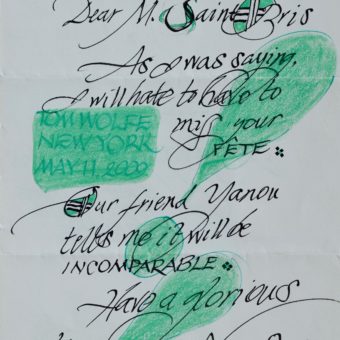 Dear M. Saint Bris
As I was saying,
I will hate to have to
miss your
FÊTE
TOM WOLFE
NEW YORK
MAY 11, 2000
Our friend Yanou
tells me it will be
INCOMPARABLE
Have a glorious